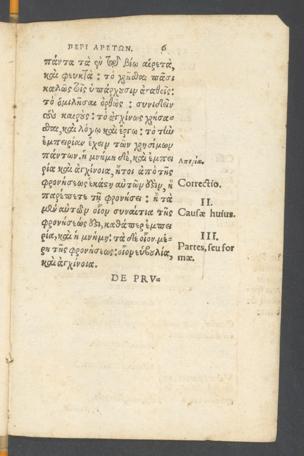 ΠΕΡΙ ΑΡΕΤΩΝ. 6
πάντα τὰ ἐν τῷ βίῳ αἱρετὰ,
καὶ φευκτά : τὸ χρῆσθαι πᾶσι
καλῶς τοῖς ὑπάρχουσιν ἀγαθοῖς:
τὸ ὁμιλῆσαι ὀρθῶς : συνιδεῖν
τοὺς καιρούς: τὸ ἀγχίνως χρήσα-
σθαι, καὶ λόγῳ καὶ ἔργῳ: τὸ τὴν
ἐμπειρίαν ἔχειν τῶν χρησίμων
πάντων. ἡ μνήμη δὲ, καὶ ἐμπει-
ρία καὶ ἀγχίνοια, ἤτοι ἀπὸ τῆς
φρονήσεως ἑκάστη αὐτῶν ἐστιν, ἢ
παρέπεται τῇ φρονήσει : ἢ τὰ
μὲν αὐτῶν οἷον συναίτια τῆς
φρονήσεώς ἐστι, καθάπερ ἐμπει-
ρία, καὶ ἡ μνήμη: τὰ δὲ οἷον μέ-
ρη τῆς φρονήσεως: οἷον εὐβουλία,
καὶ ἀγχίνοια.
Correctio.
II.
Causæ huius.
III.
Partes, seu for
mæ.
DE PRV-